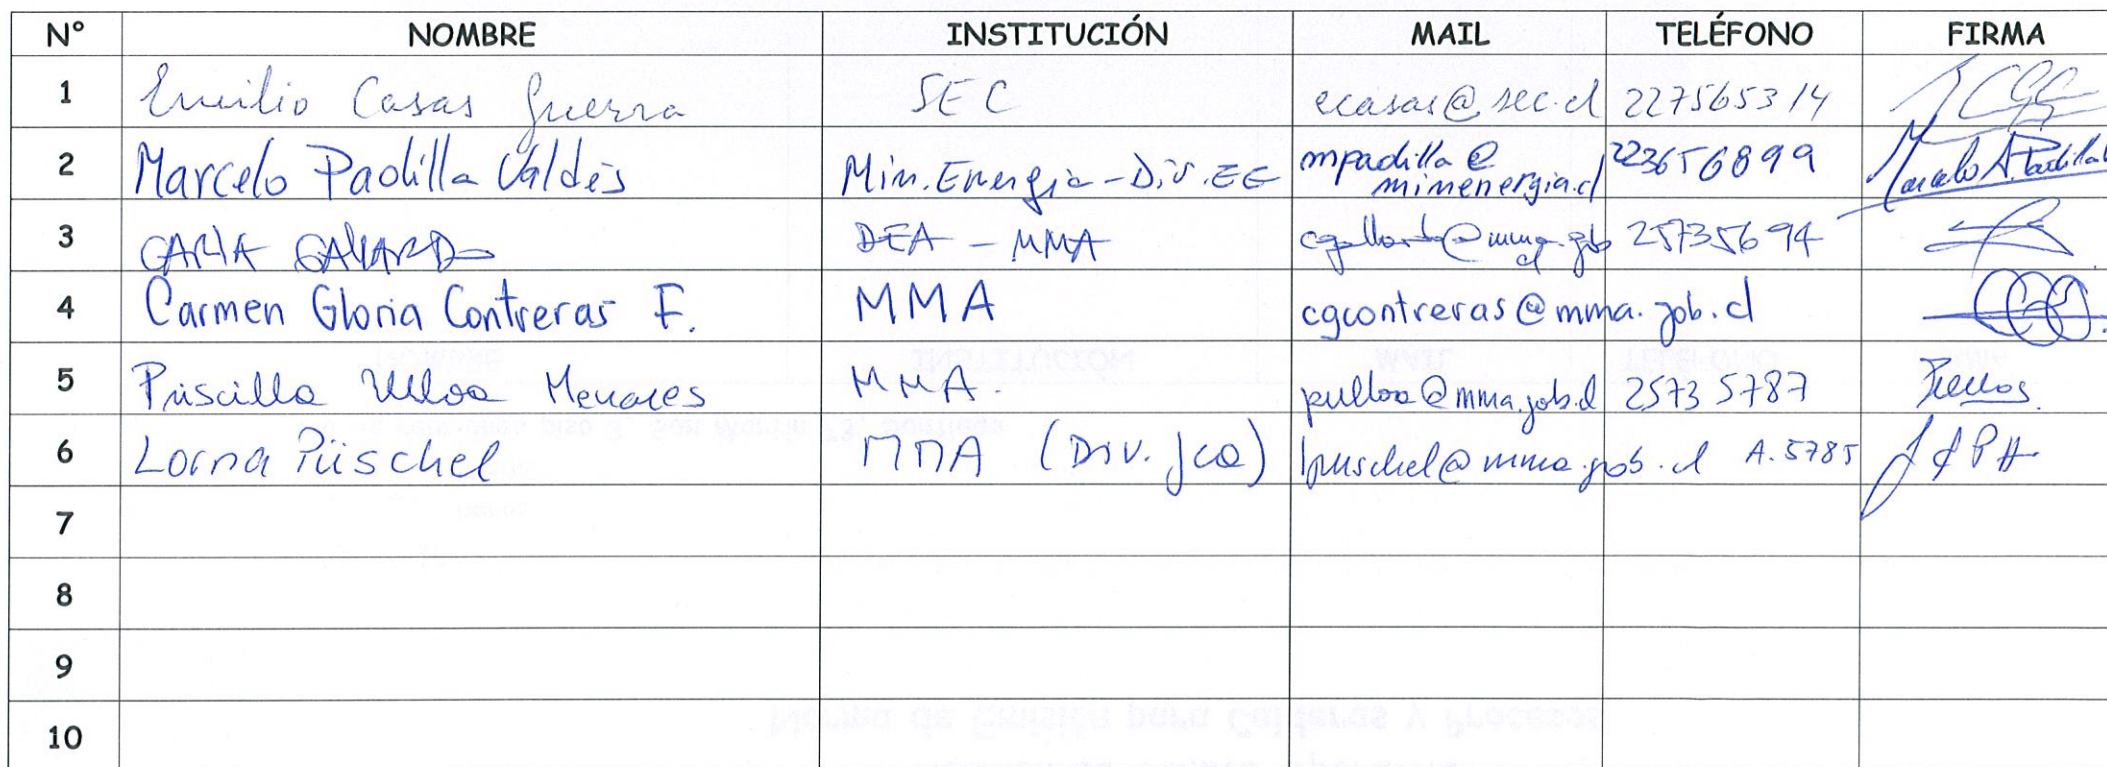 N° NOMBRE INSTITUCIÓN MAIL TELÉFONO FIRMA
1 Emilio Casas Guerra SEC ecasas@sec.cl 227565314
2 Marcelo Padilla Valdés Min. Energía - Div. EE mpadilla@ 223656899 Marcelo A. Padilla
minenergia.cl
3 CARLA GALLARDO DEA - MMA cgallardo@mma.gob 25735694
cl
4 Carmen Gloria Contreras F. MMA cgcontreras@mma.gob.cl
5 Priscilla Ulloa Menares MMA. pulloa@mma.gob.cl 2573 5787
6 Lorna Püschel MMA (Div. Jca) lpuschel@mma.gob.cl A. 5785
7
8
9
10